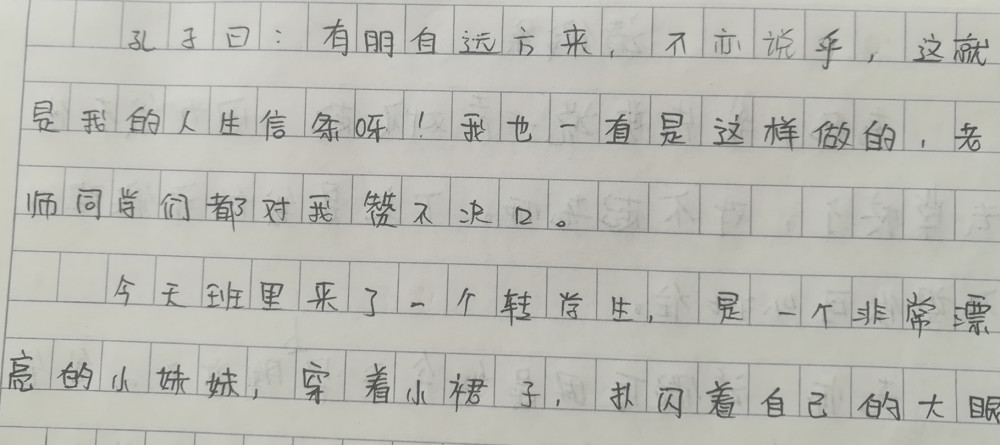 孔子曰：有朋自远方来，不亦说乎，这就
是我的人生信条呀！我也一直是这样做的，老
师同学们都对我赞不决口。
今天班里来了一个转学生，是一个非常漂
亮的小妹妹，穿着小裙子，扑闪着自己的大眼